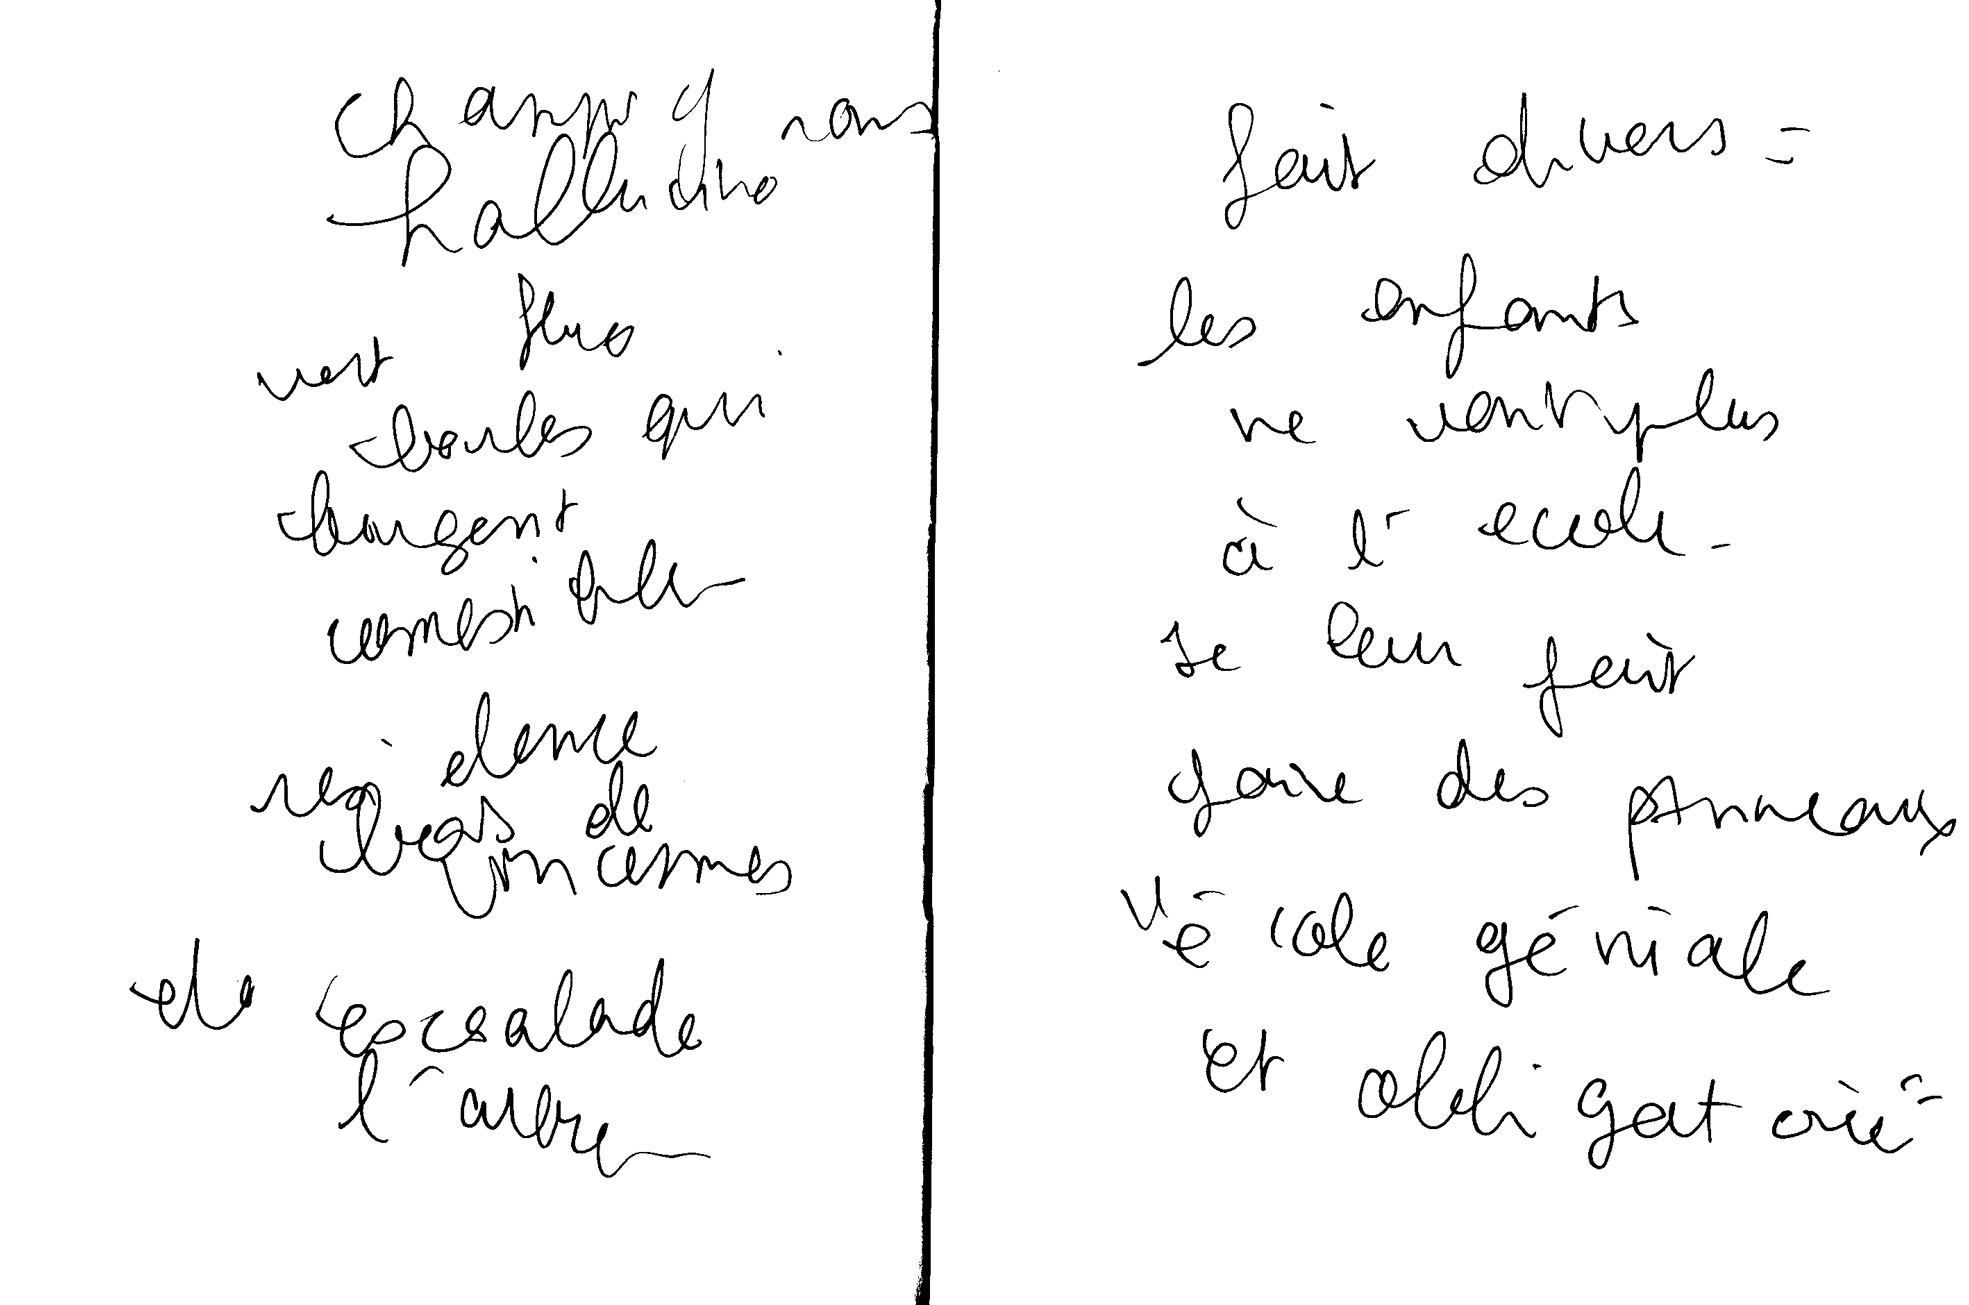 champignons
hallucino
vert fluo
boules qui
bougent
comestible
résidence
bois de
Vincennes
de escalade
l'arbre
fait divers =
les enfants
ne vont plus
à l'ecole.
Je leur fait
faire des panneaux
école géniale
et obligatoire